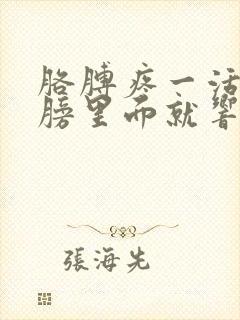 胳膊疼一活
膀里面就響
張海先